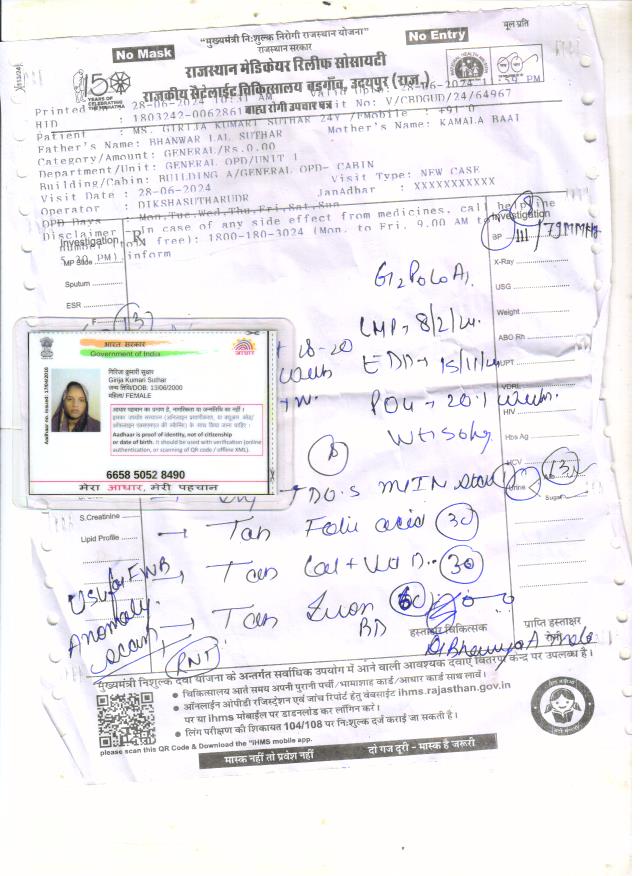 "मुख्यमंत्री नि:शुल्क निरोगी राजस्थान योजना"
राजस्थान सरकार
मूल प्रति
No Mask
No Entry
राजस्थान मेडिकेयर रिलीफ सोसायटी
राजकीय सैटेलाईट चिकित्सालय बड़गाँव, उदयपुर (राज.)
बाह्य रोगी उपचार पत्र
150
YEARS OF
CELEBRATING
THE MAHATMA
Printed : 28-06-2024 10:31 AM
HID : 1803242-0062861
No: V/CBDGUD/24/64967
Patient : MS. GIRIJA KUMARI SUTHAR 24Y /F
Mobile : +91 0
Father's Name: BHANWAR LAL SUTHAR
Mother's Name: KAMALA BAAI
Category/Amount: GENERAL/Rs.0.00
Department/Unit: GENERAL OPD/UNIT 1
Building/Cabin: BUILDING A/GENERAL OPD- CABIN
Visit Date : 28-06-2024
Visit Type: NEW CASE
Operator : DIKSHASUTHARUDR
JanAdhar : XXXXXXXXXXX
OPD Days : Mon,Tue,Wed,Thu,Fri,Sat,Sun
Disclaimer : In case of any side effect from medicines, call help line
free): 1800-180-3024 (Mon. to Fri. 9.00 AM to
5.30 PM) inform
Investigation
Rx
Investigation
BP 111/79 MMHg
MP Slide
X-Ray
Sputum
USG
ESR
Weight
ABO Rh
UPT
VDRL
HIV
Hbs Ag
HCV
Urine
Sugar
G2P0L0A1
LMP → 8/2/24.
18-20
EDD → 15/11/24
POG → 20.1 week.
Wt: 50kg
भारत सरकार
Government of India
आधार
गिरिजा कुमारी सुथार
Girija Kumari Suthar
जन्म तिथि/DOB: 13/06/2000
महिला/ FEMALE
Aadhaar no. issued: 17/04/2010
आधार पहचान का प्रमाण है, नागरिकता या जन्मतिथि का नहीं।
Aadhaar is proof of identity, not of citizenship
or date of birth. It should be used with verification (online
authentication, or scanning of QR code / offline XML).
6658 5052 8490
मेरा आधार, मेरी पहचान
S.Creatinine
Lipid Profile
→ Tab Folic acid 30
→ Tab Cal + Vit D 30
→ Tab Iron 60
BD
USG for FWB
Anomaly
scan
RNT
हस्ताक्षर चिकित्सक
प्राप्ति हस्ताक्षर
रोगी
मुख्यमंत्री निशुल्क दवा योजना के अन्तर्गत सर्वाधिक उपयोग में आने वाली आवश्यक दवाएं वितरण केन्द्र पर उपलब्ध है।
• चिकित्सालय आते समय अपनी पुरानी पर्ची/भामाशाह कार्ड/आधार कार्ड साथ लावें।
• ऑनलाईन ओपीडी रजिस्ट्रेशन एवं जांच रिपोर्ट हेतु वेबसाईट ihms.rajasthan.gov.in
पर या ihms मोबाईल पर डाउनलोड कर लॉगिन करें।
• लिंग परीक्षण की शिकायत 104/108 पर नि:शुल्क दर्ज कराई जा सकती है।
please scan this QR Code & Download the "iHMS mobile app.
मास्क नहीं तो प्रवेश नहीं
दो गज दूरी - मास्क है जरूरी